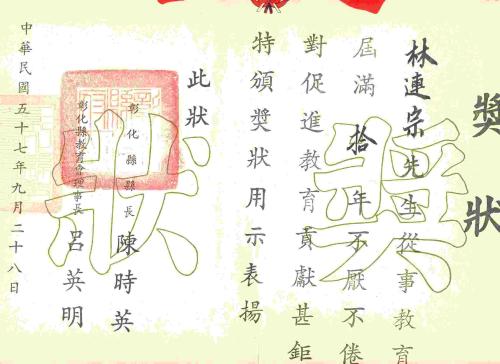 獎狀
林連宗先生從事教育
屆滿拾年不厭不倦
對促進教育貢獻甚鉅
特頒獎狀用示表揚
此狀
彰化縣縣長陳時英
彰化縣教育會理事長呂英明
中華民國五十七年九月二十八日